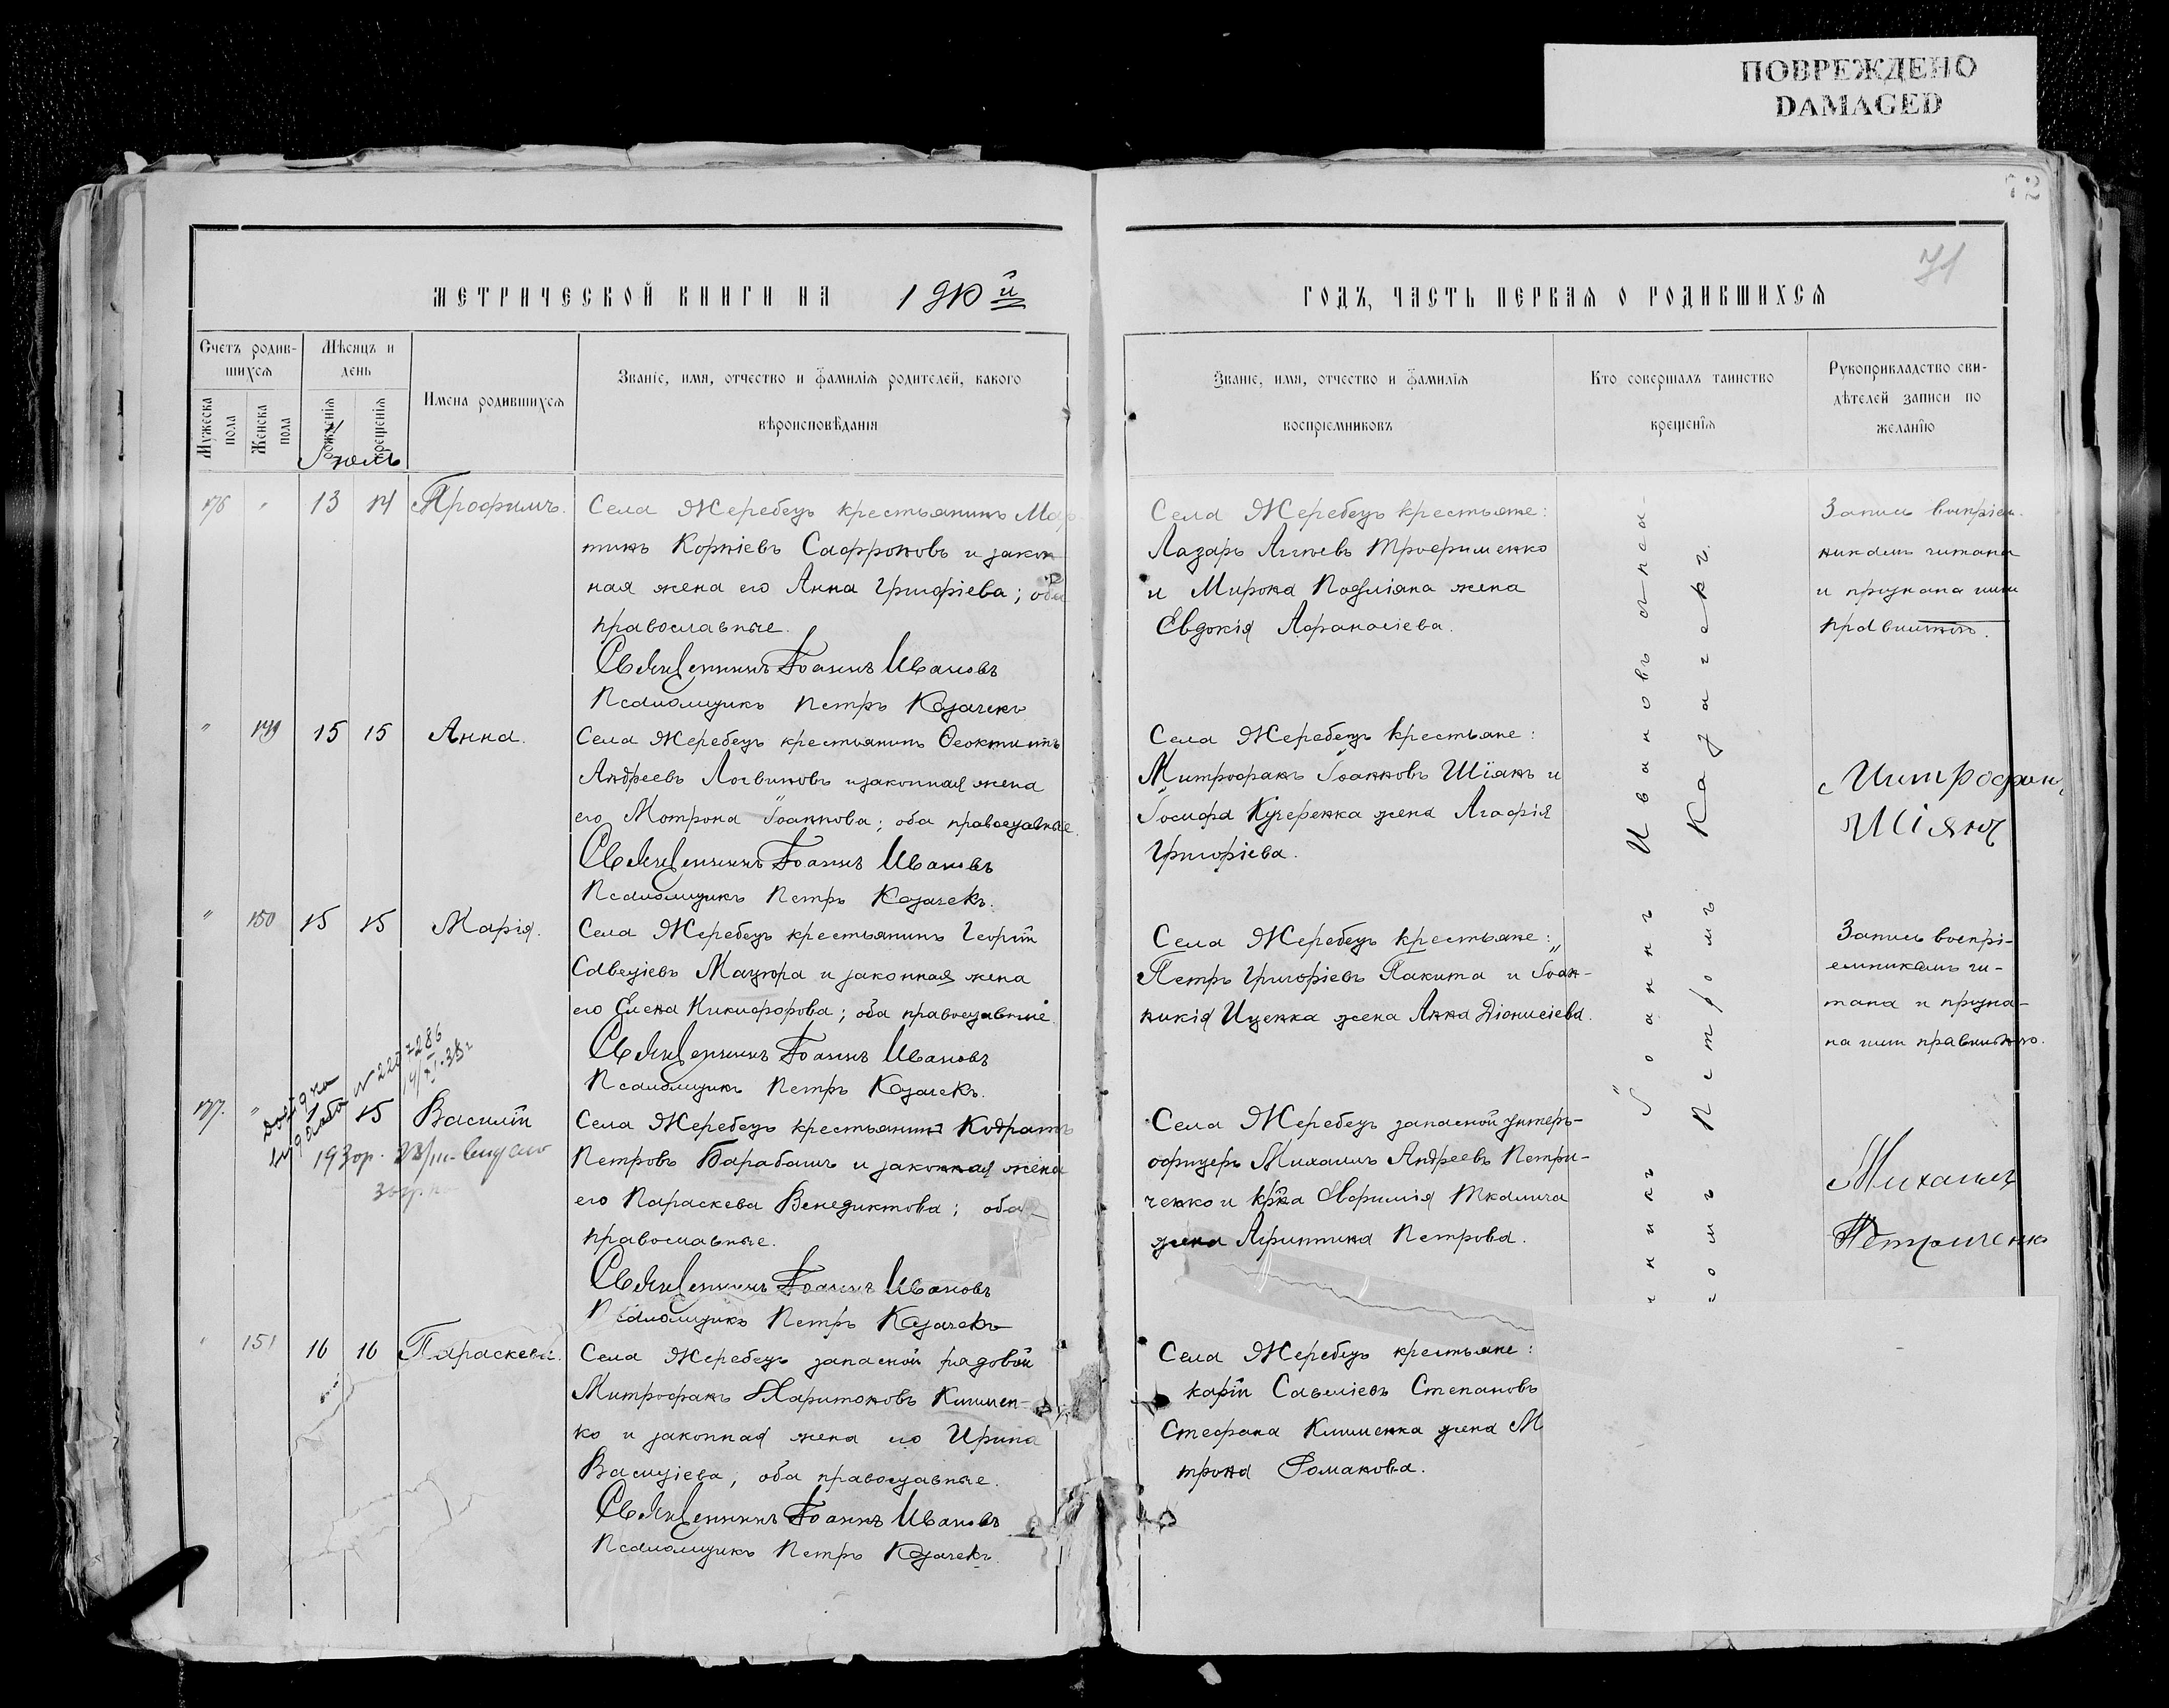 ПОВРЕЖДЕНО
DAMAGED
71
МЕТРИЧЕСКОЙ КНИГИ НА 1910й
ГОДЪ, ЧАСТЬ ПЕРВАЯ О РОДИВШИХСЯ
Счетъ родив-
шихся
Мужеска пола
Женска пола
Мѣсяцъ и
день
рожденія
крещенія
Имена родившихся
Званіе, имя, отчество и фамилія родителей, какого
вѣроисповѣданія
Званіе, имя, отчество и фамилія
воспріемниковъ
Кто совершалъ таинство
крещенія
Рукоприкладство сви-
дѣтелей записи по
желанію
Іюль
176 " 13 14 Трофимъ.
Села Жеребецъ крестьянинъ Мар-
тинъ Корніевъ Сафроновъ и закон
ная жена его Анна Григоріева; оба
православные.
Священникъ Іоаннъ Ивановъ
Псаломщикъ Петръ Казачекъ
Села Жеребецъ крестьяне:
Лазарь Трофименко
и Мирона жена
Евдокія Афанасіева.
Запись воспріем-
никамъ читана
и признана ими
правильною.
" 149 15 15 Анна.
Села Жеребецъ крестьянинъ Феоктистъ
Андреевъ Логвиновъ и законная жена
его Мотрона Іоаннова; оба православные.
Священникъ Іоаннъ Ивановъ
Псаломщикъ Петръ Казачекъ.
Села Жеребецъ крестьяне:
Митрофанъ Іоанновъ Шіянъ и
Іосифа Кучеренка жена Агафія
Григоріева.
Митрофанъ
Шіянъ
" 150 15 15 Марія.
Села Жеребецъ крестьянинъ Георгій
Савеліевъ Мацюра и законная жена
его Елена Никифорова; оба православные.
Священникъ Іоаннъ Ивановъ
Псаломщикъ Петръ Казачекъ.
Села Жеребецъ крестьяне:
Петръ Григоріевъ Пакита и Іоан-
никія Иценка жена Анна Діонисіева.
Запись воспрі-
емникамъ чи-
тана и призна-
на ими правильною.
177. " 15 Василій
193 23/III
Села Жеребецъ крестьянинъ Кодратъ
Петровъ Барабашъ и законная жена
его Параскева Венедиктова; оба
православные.
Священникъ Іоаннъ Ивановъ
Псаломщикъ Петръ Казачекъ
Села Жеребецъ запасной унтеръ-
офицеръ Михаилъ Андреевъ Петри-
ченко и кр-ка Евфимія Ткалича
жена Петрова.
Михаилъ
Петриченко
" 151 16 16 Параскева.
Села Жеребецъ запасной рядовой
Митрофанъ Харитоновъ Клименко-
ко и законная жена его Ирина
Василіева, оба православные.
Священникъ Іоаннъ Ивановъ
Псаломщикъ Петръ Казачекъ.
Села Жеребецъ крестьяне:
карій Савеліевъ Степановъ
Стефана Клименка жена М
трона Романова.
никъ Іоаннъ Ивановъ
комъ Петромъ Казачекъ.